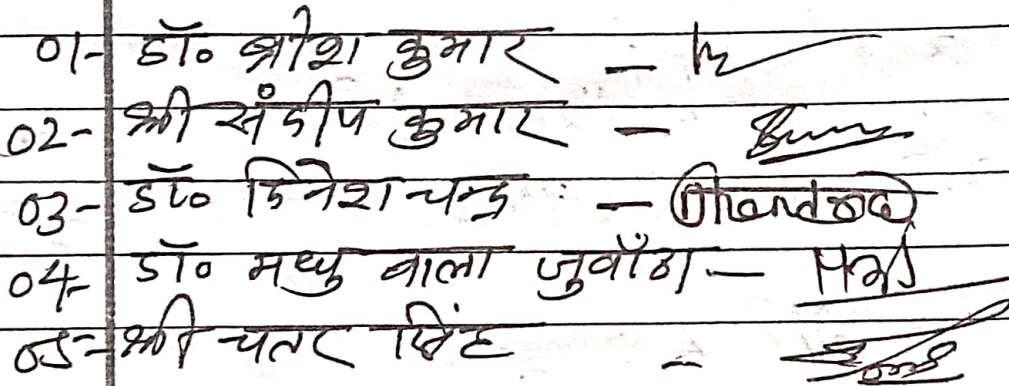 01- डॉ० श्रीश कुमार -
02- श्री संदीप कुमार -
03- डॉ० दिनेश चन्द्र : - DChandra
04- डॉ० मधु बाला जुवाँठा -
05- श्री चतर सिंह -